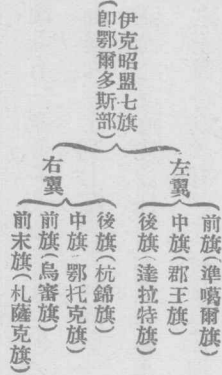 伊克昭盟七旗
(即鄂爾多斯部)
左翼
前旗(準噶爾旗)
中旗(郡王旗)
後旗(達拉特旗)
右翼
後旗(杭錦旗)
中旗(鄂托克旗)
前旗(烏審旗)
前末旗(札薩克旗)